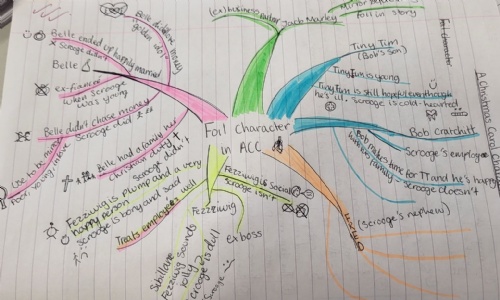 (ex) business
Jacob Marley
foil in story
Foil character
A Christmas Carol
Belle didn't
golden idol
Belle ended up happily married
Scrooge didn't
Belle
ex-fiance
when Scrooge
was young
Belle didn't chase money
Scrooge did
Belle had a family her
christian duty
Scrooge didn't
Foil character
in ACC
Tiny Tim
(Bob's Son)
Tiny Tim is young
Tiny Tim is still hopeful even though
he's ill, scrooge is cold-hearted
Bob Cratchitt
Scrooge's employee
Bob makes time for TT and he's happy
scrooge doesn't
(scrooge's nephew)
Fezziwig is plump and a very
happy person
scrooge is bony and sad
Treats employees well
Fezziwig is social
Scrooge isn't
Fezziwig
ex boss
Fezziwig sounds
jolly
scrooge is dull